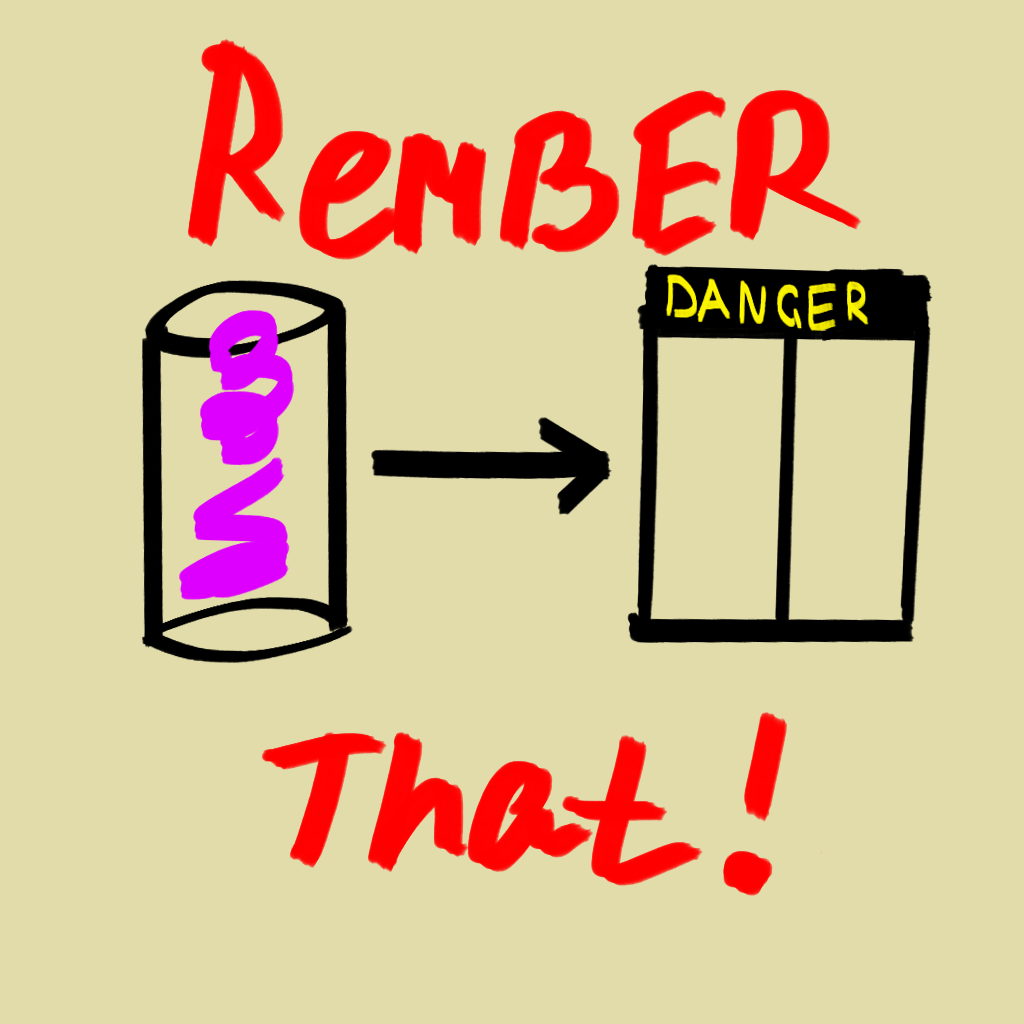 RemBER
DANGER
That!